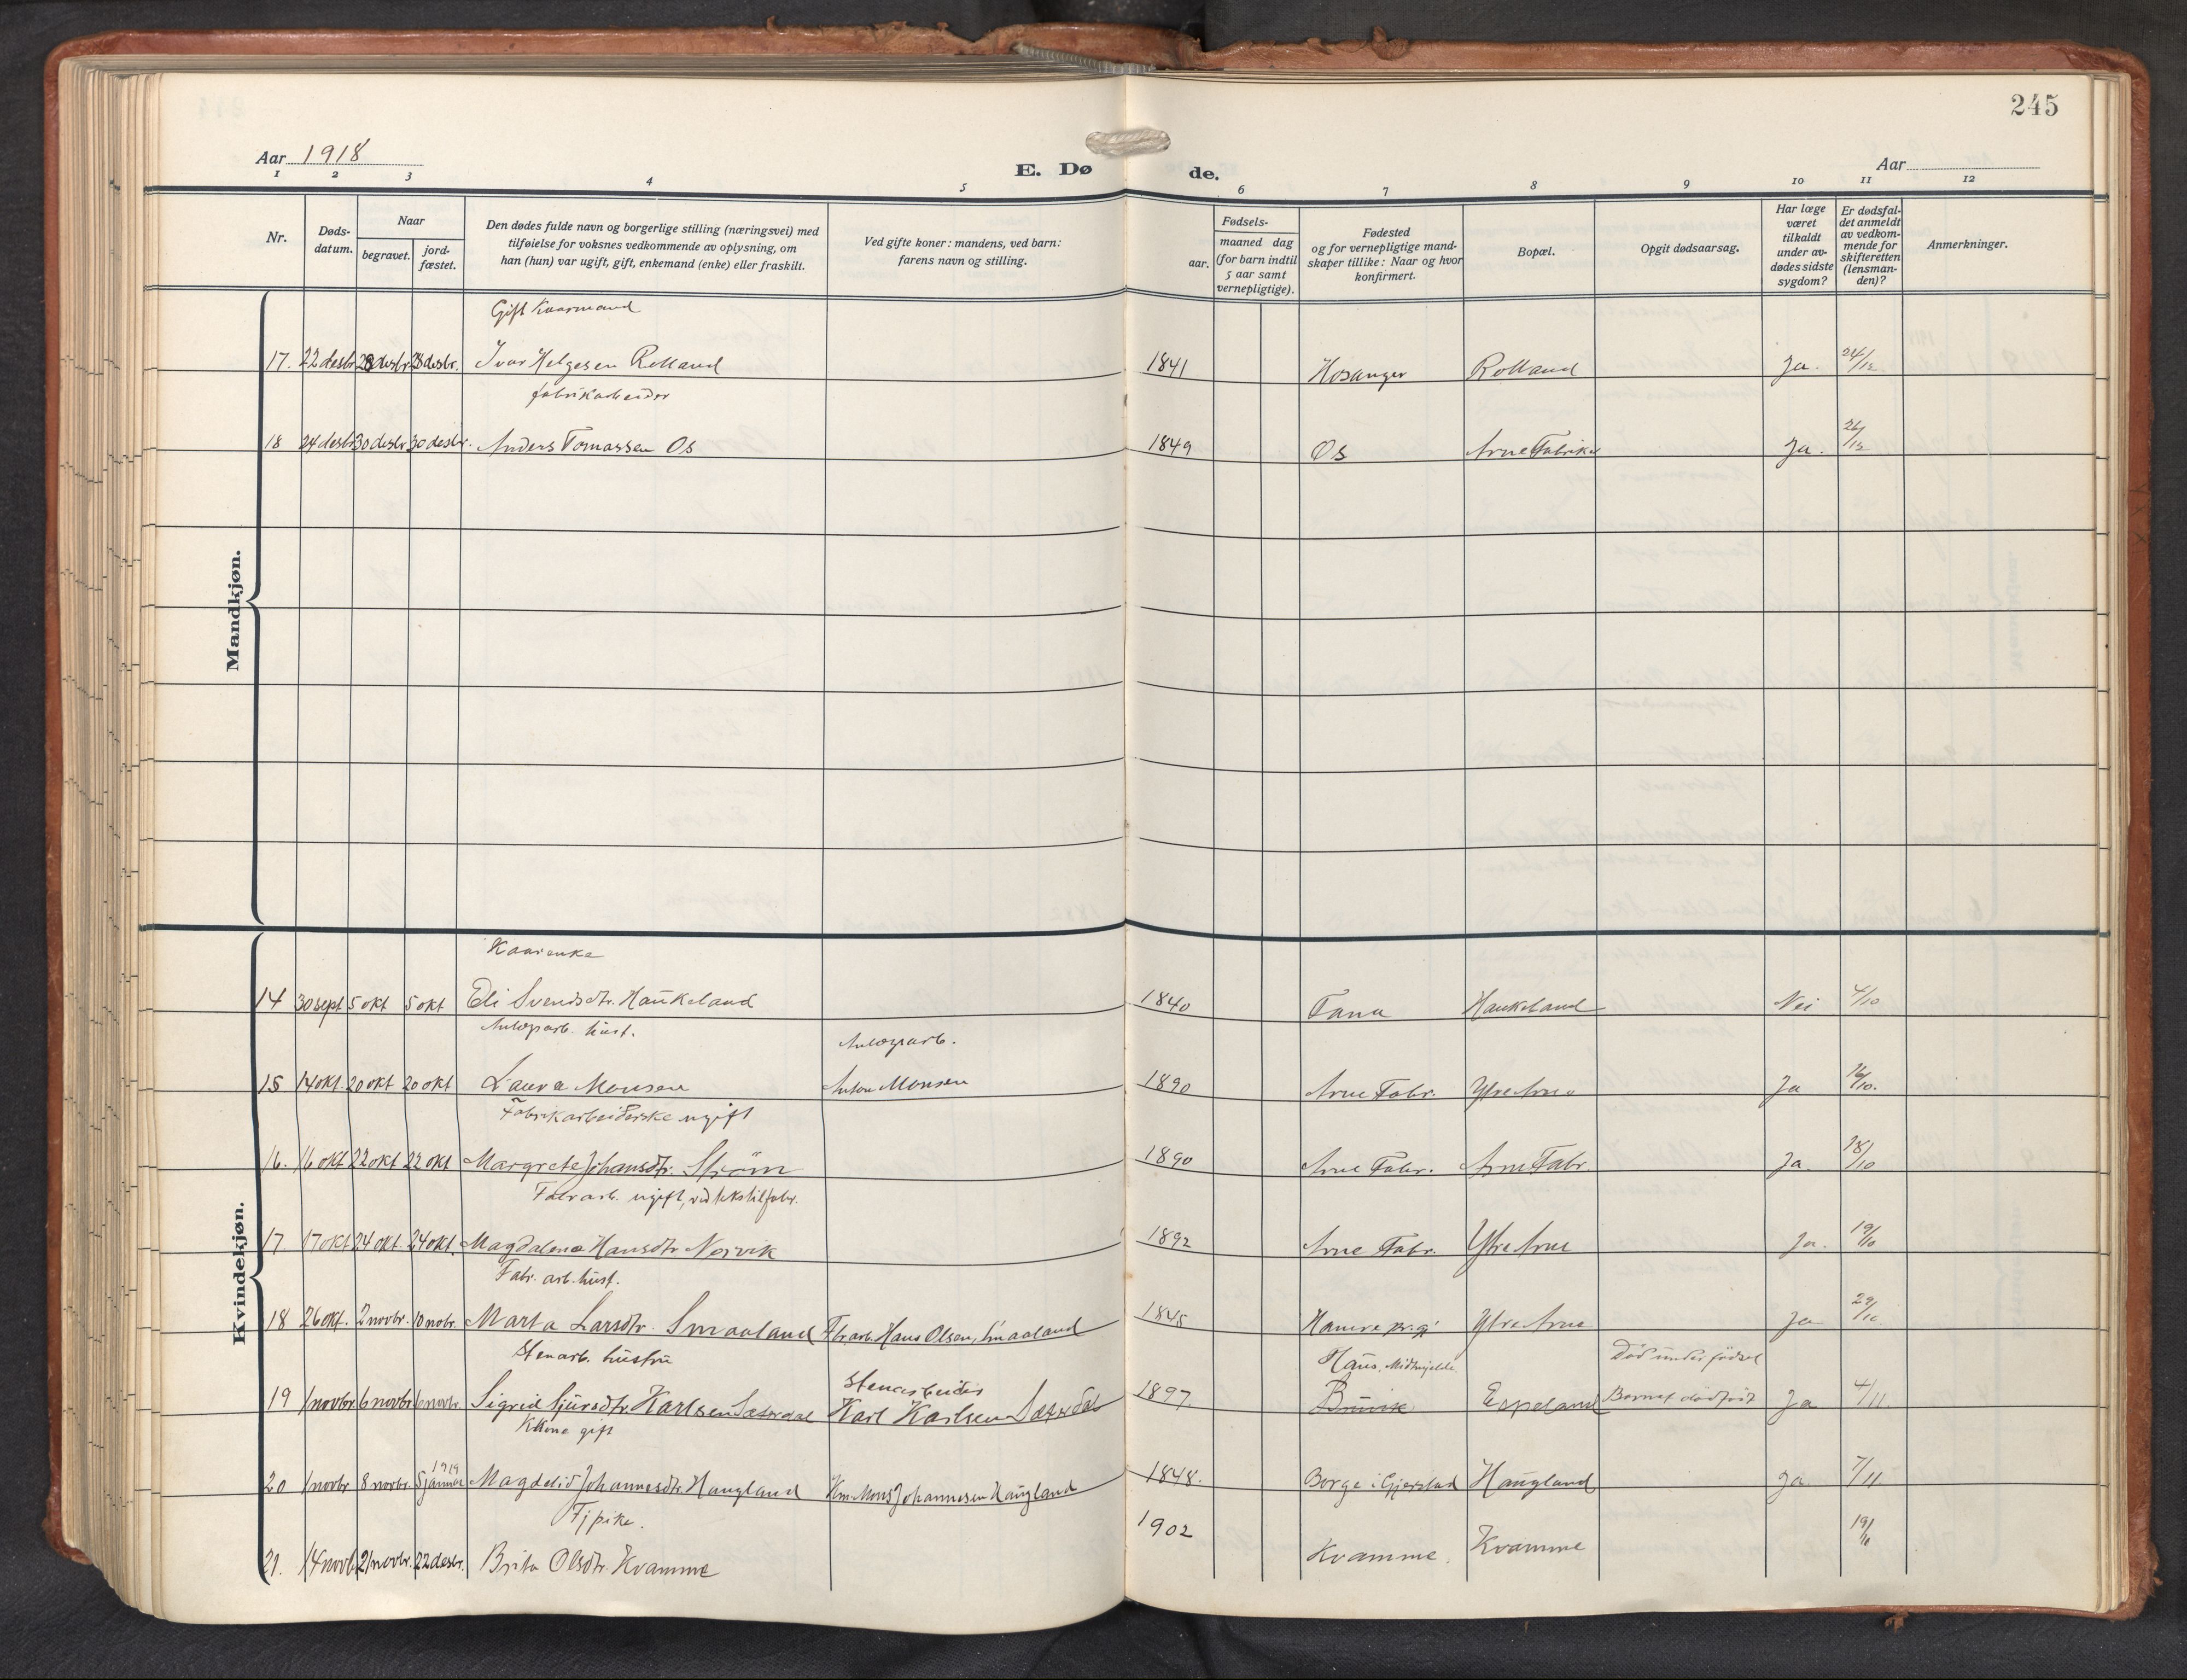 245
Aar 1918
E. Dø de.
Aar
1 2 3 4 5 6 7 8 9 10 11 12
Nr.
Døds-
datum.
Naar
begravet.
jord-
fæstet.
Den dødes fulde navn og borgerlige stilling (næringsvei) med
tilføielse for voksnes vedkommende av oplysning, om
han (hun) var ugift, gift, enkemand (enke) eller fraskilt.
Ved gifte koner: mandens, ved barn:
farens navn og stilling.
Fødsels-
aar.
maaned dag
(for barn indtil
5 aar samt
vernepligtige).
Fødested
og for vernepligtige mand-
skaper tillike: Naar og hvor
konfirmert.
Bopæl.
Opgit dødsaarsag.
Har læge
været
tilkaldt
under av-
dødes sidste
sygdom?
Er dødsfal-
det anmeldt
av vedkom-
mende for
skifteretten
(lensman-
den)?
Anmerkninger.
Mandkjøn.
Gift Kaarmand
17. 22 desbr 28 desbr 28 desbr. Ivar Helgesen Rolland 1841 Hosanger Rolland Ja. 24/12
fabrikarbeider
18 24 desbr 30 desbr 30 desbr. Anders Tomassen Os 1849 Os Arne Fabrike Ja. 26/12
Kvindekjøn.
Kaarenke
14 30 sept 5 okt 5 okt Eli Svendsdtr. Haukeland 1840 Fana Haukeland Nei 4/10
Anlægsarb. hust.
Anlægsarb.
15 14 okt. 20 okt 20 okt Laura Monsen Anton Monsen 1890 Arne Fabr. Ytre Arne Ja 16/10.
Fabrikarbeiderske ugift
16. 16 okt 22 okt 22 okt Margrete Johansdtr. Strøm 1890 Arne Fabr. Arne Fabr Ja 18/10
Fabrarb. ugift, ved tekstilfabr.
17. 17 okt 24 okt. 24 okt. Magdalena Hansdtr Norvik 1892 Arne Fabr. Ytre Arne Ja. 19/10
Fabr. arb. hust.
18 26 okt. 2 novbr. 10 nobr. Marta Larsdtr. Smaaland Fbrarb. Hans Olsen, Smaaland 1845 Hamre pr.gj Ytre Arne Ja 29/10
Stenarb. hustru
Haus, Midtmjelde
Død under fødsel
stenarbeider
19 1 novbr. 6 novbr. 6 novbr. Sigrid Sjursdtr. Karlsen Sætredal Karl Karlsen Sætredal 1897 Bruvik Espeland Barnet dødfødt Ja 4/11.
Kkone gift
1919
20 1 novbr 8 novbr. 5 januar Magdelid Johannesdtr. Haugland Km. Mons Johannesen Haugland 1848. Borge i Gjerstad Haugland Ja 7/11
Tjpike.
21. 14 novb. 21 novbr. 22 desbr. Brita Olsdtr. Kvamme 1902 Kvamme. Kvamme 19/11